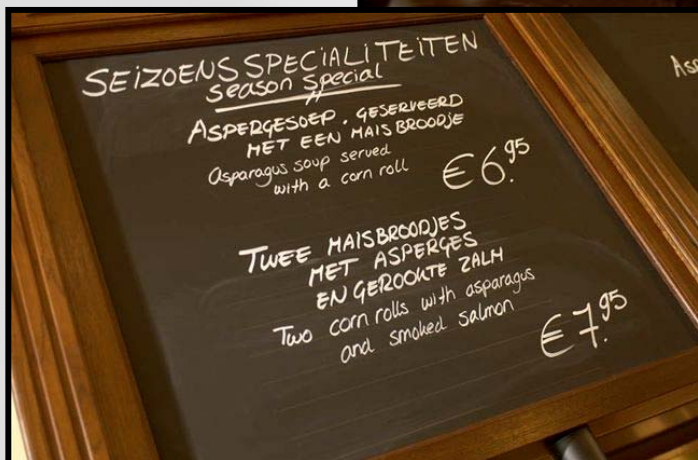 SEIZOENSSPECIALITEITEN
season special
ASPERGESOEP. GESERVEERD
MET EEN MAISBROODJE
Asparagus soup served
with a corn roll
€ 6.95
TWEE MAISBROODJES
MET ASPERGES
EN GEROOKTE ZALM
Two corn rolls with asparagus
and smoked salmon
€ 7.95